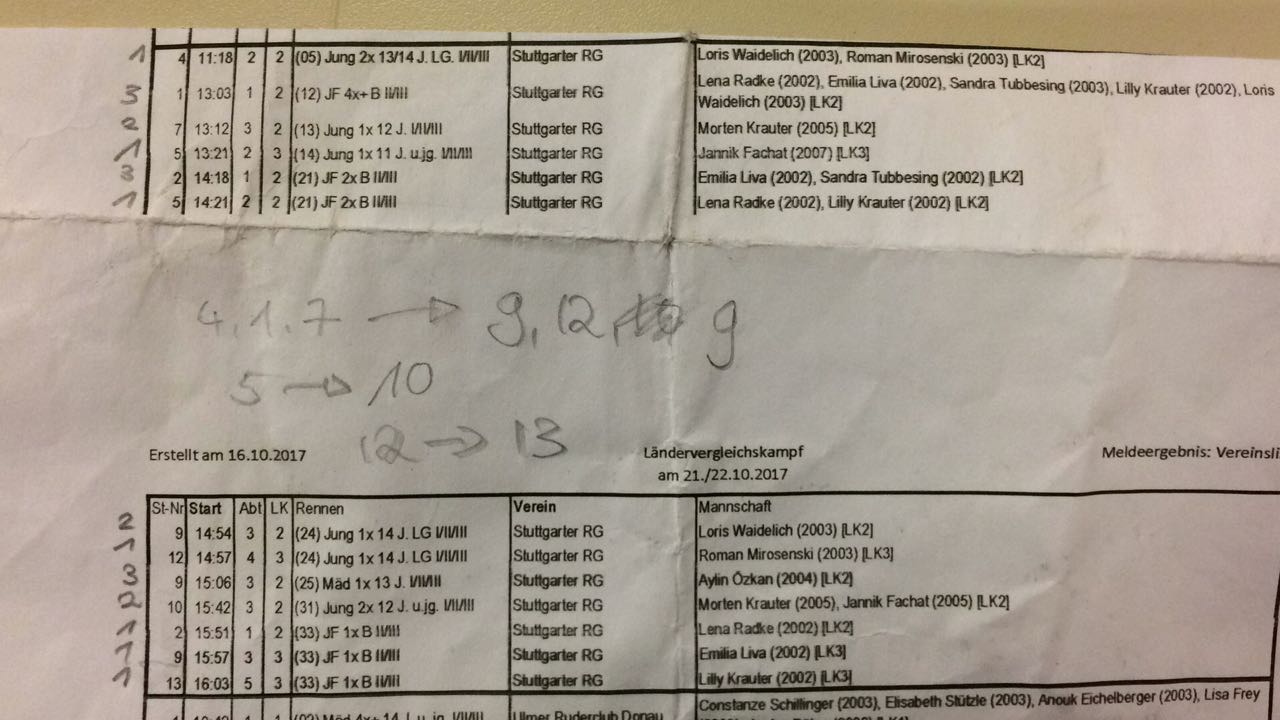 1 4 11:18 2 2 (05) Jung 2x 13/14 J. LG. I/II/III Stuttgarter RG Loris Waidelich (2003), Roman Mirosenski (2003) [LK2]
3 1 13:03 1 2 (12) JF 4x+ B II/III Stuttgarter RG Lena Radke (2002), Emilia Liva (2002), Sandra Tubbesing (2003), Lilly Krauter (2002), Loris
Waidelich (2003) [LK2]
2 7 13:12 3 2 (13) Jung 1x 12 J. I/II/III Stuttgarter RG Morten Krauter (2005) [LK2]
1 5 13:21 2 3 (14) Jung 1x 11 J. u.jg. I/II/III Stuttgarter RG Jannik Fachat (2007) [LK3]
3 2 14:18 1 2 (21) JF 2x B II/III Stuttgarter RG Emilia Liva (2002), Sandra Tubbesing (2002) [LK2]
1 5 14:21 2 2 (21) JF 2x B II/III Stuttgarter RG Lena Radke (2002), Lilly Krauter (2002) [LK2]
4,1,7 → 9,12, 9
5 → 10
12 → 13
Erstellt am 16.10.2017 Ländervergleichskampf Meldeergebnis: Vereinsli
am 21./22.10.2017
St-Nr Start Abt LK Rennen Verein Mannschaft
2 9 14:54 3 2 (24) Jung 1x 14 J. LG I/II/III Stuttgarter RG Loris Waidelich (2003) [LK2]
1 12 14:57 4 3 (24) Jung 1x 14 J. LG I/II/III Stuttgarter RG Roman Mirosenski (2003) [LK3]
3 9 15:06 3 2 (25) Mäd 1x 13 J. I/II/III Stuttgarter RG Aylin Özkan (2004) [LK2]
2 10 15:42 3 2 (31) Jung 2x 12 J. u.jg. I/II/III Stuttgarter RG Morten Krauter (2005), Jannik Fachat (2005) [LK2]
1 2 15:51 1 2 (33) JF 1x B II/III Stuttgarter RG Lena Radke (2002) [LK2]
1 9 15:57 3 3 (33) JF 1x B II/III Stuttgarter RG Emilia Liva (2002) [LK3]
1 13 16:03 5 3 (33) JF 1x B II/III Stuttgarter RG Lilly Krauter (2002) [LK3]
Constanze Schillinger (2003), Elisabeth Stützle (2003), Anouk Eichelberger (2003), Lisa Frey
(02) Mäd 4x+ 14 J. u. jg. I/II/III Ulmer Ruderclub Donau